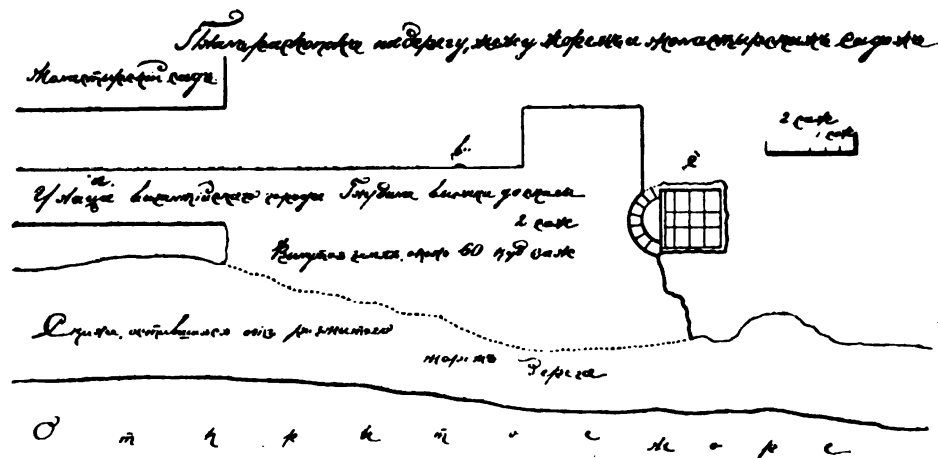 Планъ раскопки на берегу, между моремъ и монастырскимъ садомъ
Монастырскій садъ
2 саж
1 саж
в.
ѐ
а.
Улица византійскаго города Глубина выемки до скалы
2 саж
Вынутая земля около 60 куб саж
Скала, оставшаяся отъ размытаго
моремъ берега
Открытое море